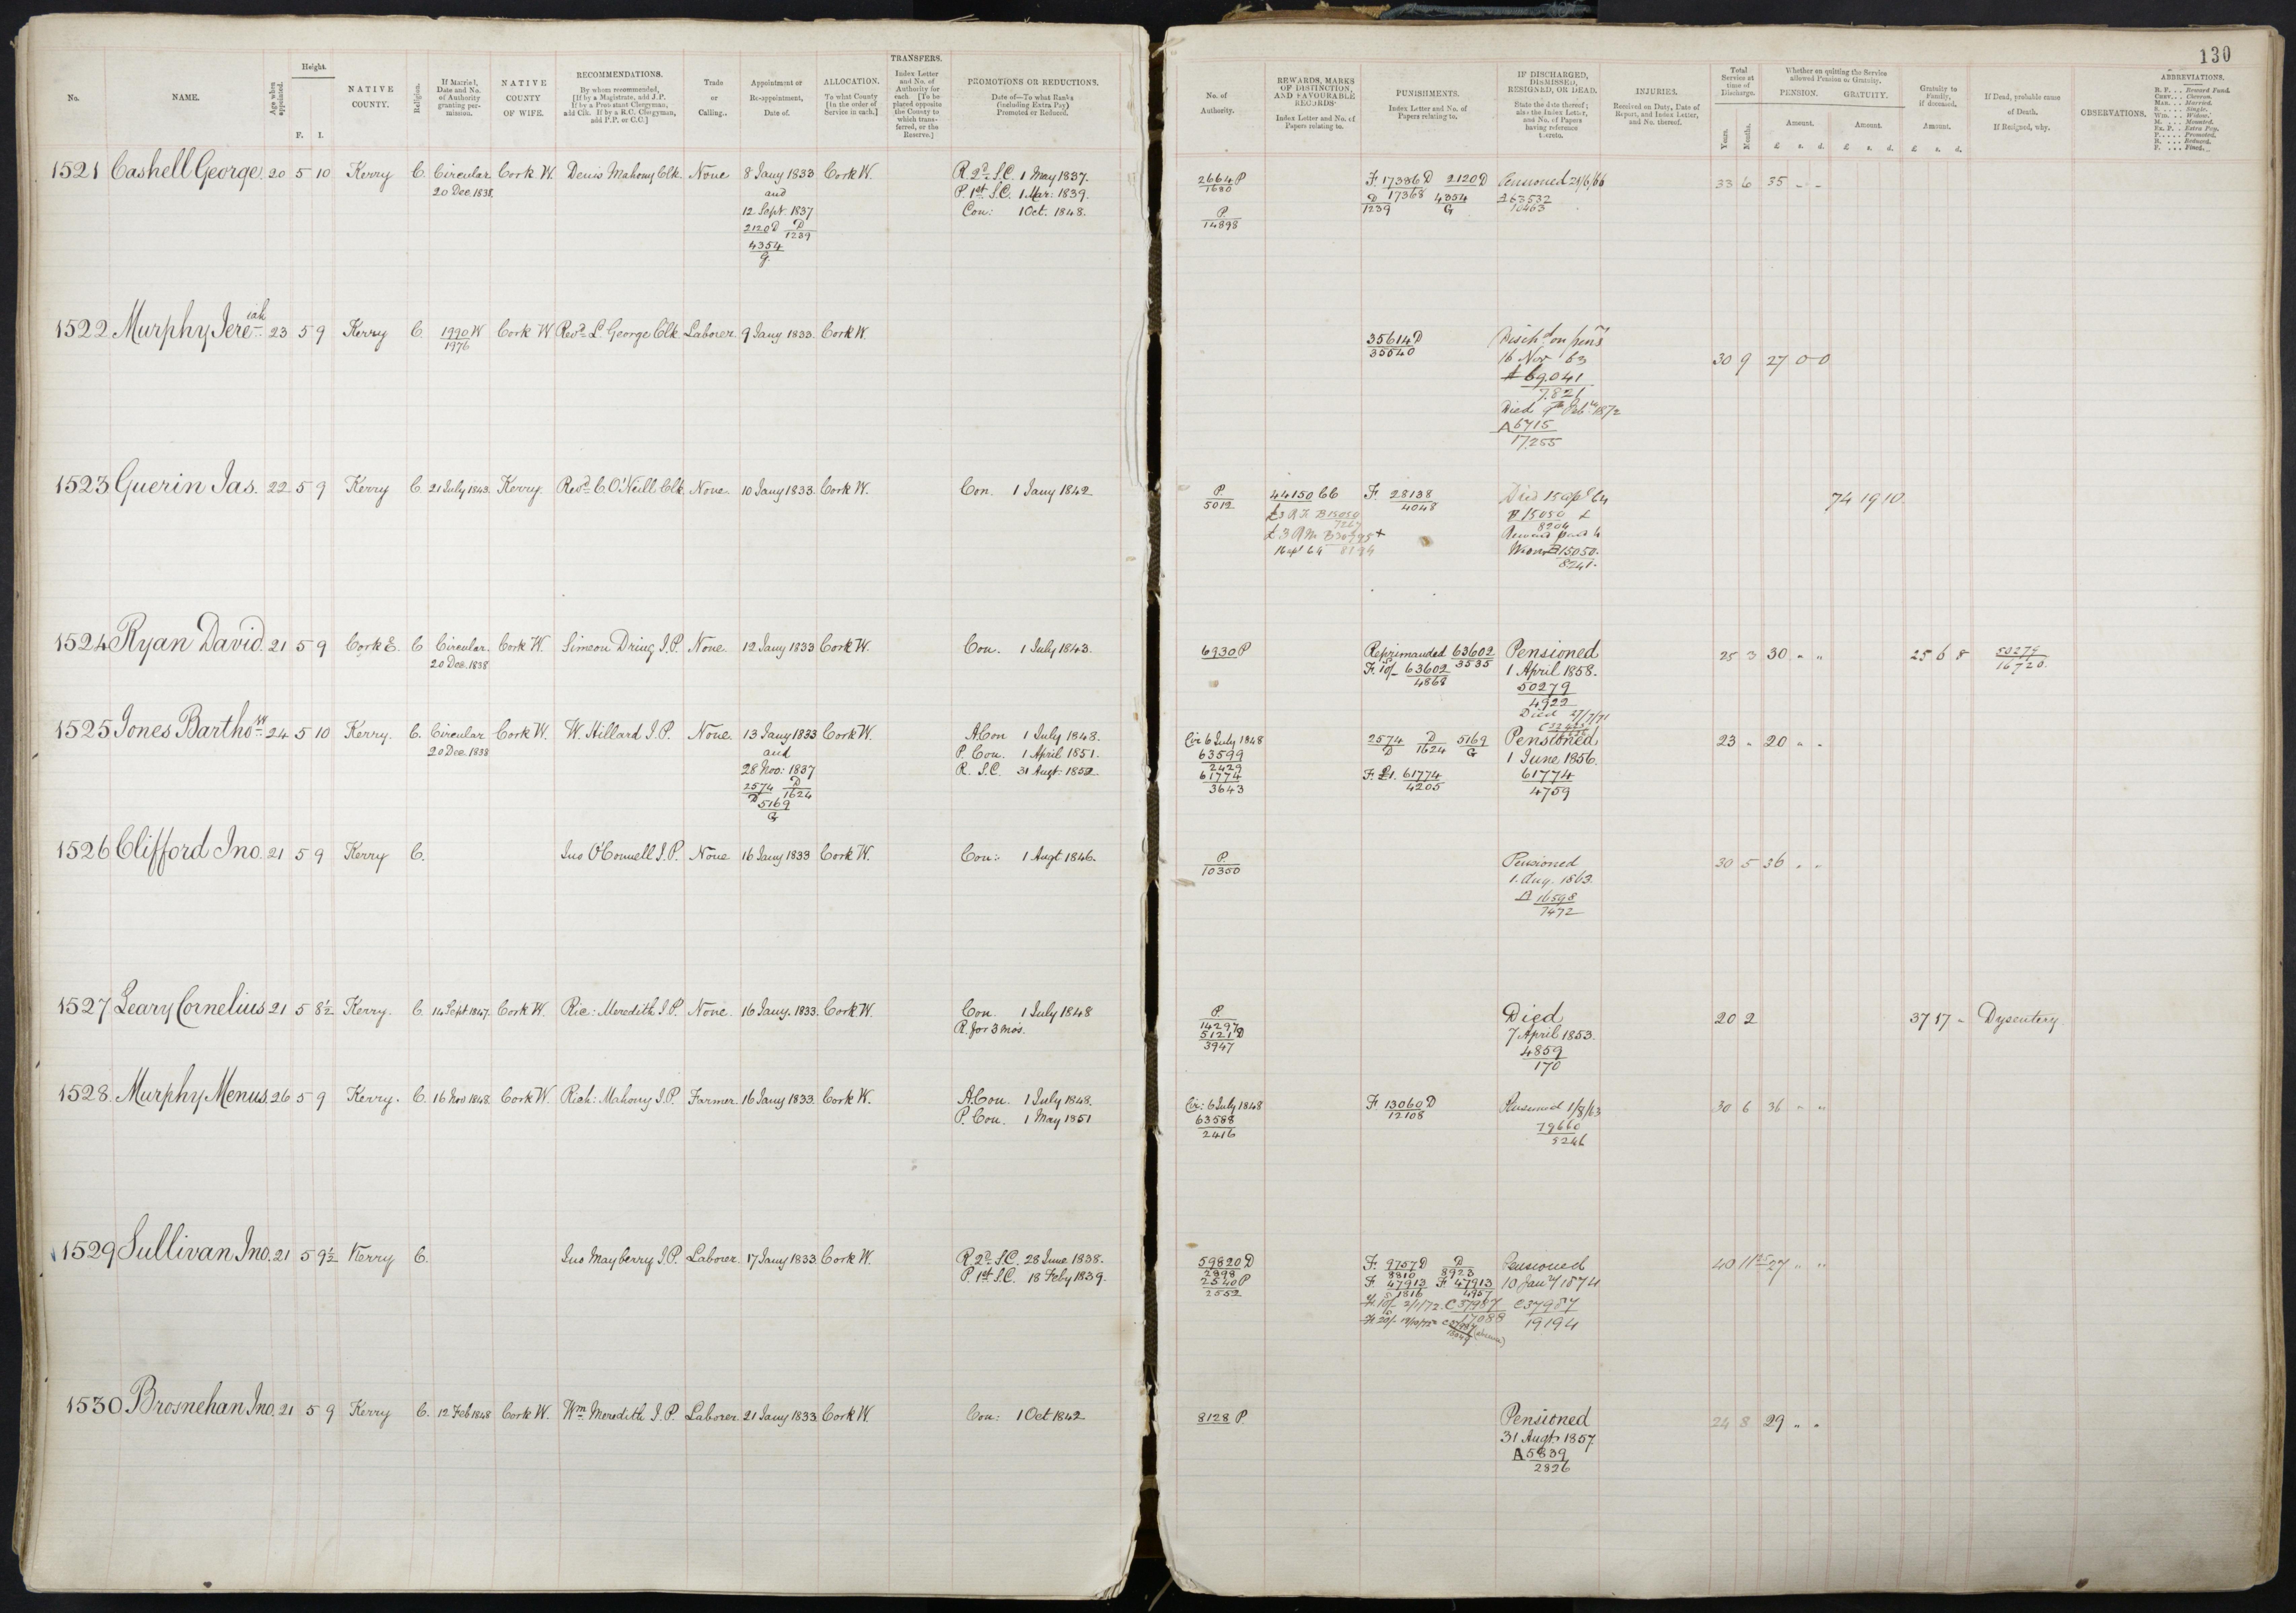 130
No.
NAME.
Age when appointed.
Height.
F. I.
NATIVE COUNTY.
Religion.
If Married, Date and No. of Authority granting permission.
NATIVE COUNTY OF WIFE.
RECOMMENDATIONS.
By whom recommended, [If by a Magistrate, add J.P. If by a Protestant Clergyman, add Clk. If by a R.C. Clergyman, add P.P. or C.C.]
Trade or Calling.
Appointment or Re-appointment, Date of.
ALLOCATION.
To what County [In the order of Service in each.]
TRANSFERS.
Index Letter and No. of Authority for each [To be placed opposite the County to which transferred, or the Reserve.]
PROMOTIONS OR REDUCTIONS.
Date of—To what Ranks (including Extra Pay) Promoted or Reduced.
No. of Authority.
REWARDS, MARKS OF DISTINCTION, AND FAVOURABLE RECORDS.
Index Letter and No. of Papers relating to.
PUNISHMENTS.
Index Letter and No. of Papers relating to.
IF DISCHARGED, DISMISSED, RESIGNED, OR DEAD.
State the date thereof; also the Index Letter, and No. of Papers having reference thereto.
INJURIES.
Received on Duty, Date of Report, and Index Letter, and No. thereof.
Total Service at time of Discharge.
Years. Months.
Whether on quitting the Service allowed Pension or Gratuity.
PENSION. GRATUITY.
Amount. Amount.
£ s. d. £ s. d.
Gratuity to Family, if deceased.
Amount.
£ s. d.
If Dead, probable cause of Death.
If Resigned, why.
OBSERVATIONS.
ABBREVIATIONS.
R. F. . . Reward Fund.
Chev. . . Chevron.
Mar. . . Married.
S. . . . . Single.
Wid. . . Widow.
M. . . . Mounted.
Ex. P. . . Extra Pay.
P. . . . . Promoted.
R. . . . . Reduced.
F. . . . Fined.
1521 Cashell George 20 5 10 Kerry C. Circular Cork W. Denis Mahony Clk. None 8 Jany 1833 Cork W. R 2d S.C. 1 May 1837.
20 Dec. 1838. and P. 1st S.C. 1 Mar: 1839.
12 Sept. 1837 Con: 1 Oct. 1848.
2120 D D
1239
4354
G.
2664 P F. 17386 D 2120 D Pensioned 33 6 35 - -
1680 17368 4354
D 1239 G
P.
14898
1522 Murphy Jereiah 23 5 9 Kerry C. 1990 W Cork W Revd L. George Clk. Laborer 9 Jany 1833. Cork W.
1976
35614 D Dischd on pens
35540 16 Nov 63 30 9 27 0-0
69041
7821
Died Feb 1872
A 6715
17255
1523 Guerin Jas. 22 5 9 Kerry C. 21 July 1843. Kerry. Revd C. O'Neill Clk. None. 10 Jany 1833. Cork W. Con. 1 Jany 1842
P. 44150 66 F. 28138 Died 15 apl 64 74 19 10
5012 4048
15050
8204
Reward paid to
15050.
8241.
1524 Ryan David 21 5 9 Cork E. C Circular Cork W. Simeon Dring J.P. None 12 Jany 1833 Cork W. Con. 1 July 1843.
20 Dec. 1838
6930 P Reprimanded 63602 Pensioned 25 3 30 " " 25 6 8 50279
3535 16720.
F. 10/- 63602 1 April 1858.
4868 50279
4922
Died 27/7/71
1525 Jones Barthow 24 5 10 Kerry. C. Circular Cork W. W. Hillard J.P. None. 13 Jany 1833 Cork W. A.Con 1 July 1848.
20 Dec. 1838 and P. Con. 1 April 1851.
28 Nov: 1837 R. S.C. 31 Augt. 1852
2574 D
D 1624
5169
G
Cir 6 July 1848 2574 D 5169 Pensioned 23 - 20 " "
63599 D 1624 G 1 June 1856.
2429
61774 F. £1. 61774 61774
3643 4205 4759
1526 Clifford Jno. 21 5 9 Kerry C. Jno O'Connell J.P. None 16 Jany 1833 Cork W. Con: 1 Augt 1846.
P. Pensioned 30 5 36 " "
10350 1. Aug. 1863.
16598
7472
1527 Leary Cornelius 21 5 8½ Kerry. C. 14 Sept 1847. Cork W. Ric: Meredith J.P. None. 16 Jany. 1833. Cork W. Con. 1 July 1848
R. for 3 mos.
P. Died 20 2 37 17 - Dysentery
14297 7 April 1853.
5121 D 4859
3947 170
1528. Murphy Menus 26 5 9 Kerry. C. 16 Nov 1848. Cork W. Rich: Mahony J.P. Farmer. 16 Jany 1833. Cork W. A.Con. 1 July 1848.
P. Con. 1 May 1851
Cir: 6 July 1848 F. 13060 D Pensioned 1/8/63 30 6 36 " "
63588 12108 79660
2416 5246
1529 Sullivan Jno. 21 5 9½ Kerry C. Jno Mayberry J.P. Laborer. 17 Jany 1833 Cork W. R. 2d S.C. 28 June 1838.
P. 1st S.C. 18 Feby 1839.
59820 D F. 9757 D D Pensioned 40 11 27 " "
2898 8810 8923
2540 P F. 47913 F 47913 10 Jany 1874
2552 1816 4957
F. 10/- 2/1/72. C 37987 C 37987
17088 19194
1530 Brosnehan Jno. 21 5 9 Kerry C. 12 Feb 1848 Cork W. Wm Meredith J.P. Laborer. 21 Jany 1833 Cork W. Con: 1 Oct 1842
8128 P. Pensioned 24 8 29 " "
31 Augt. 1857.
A 5839
2826